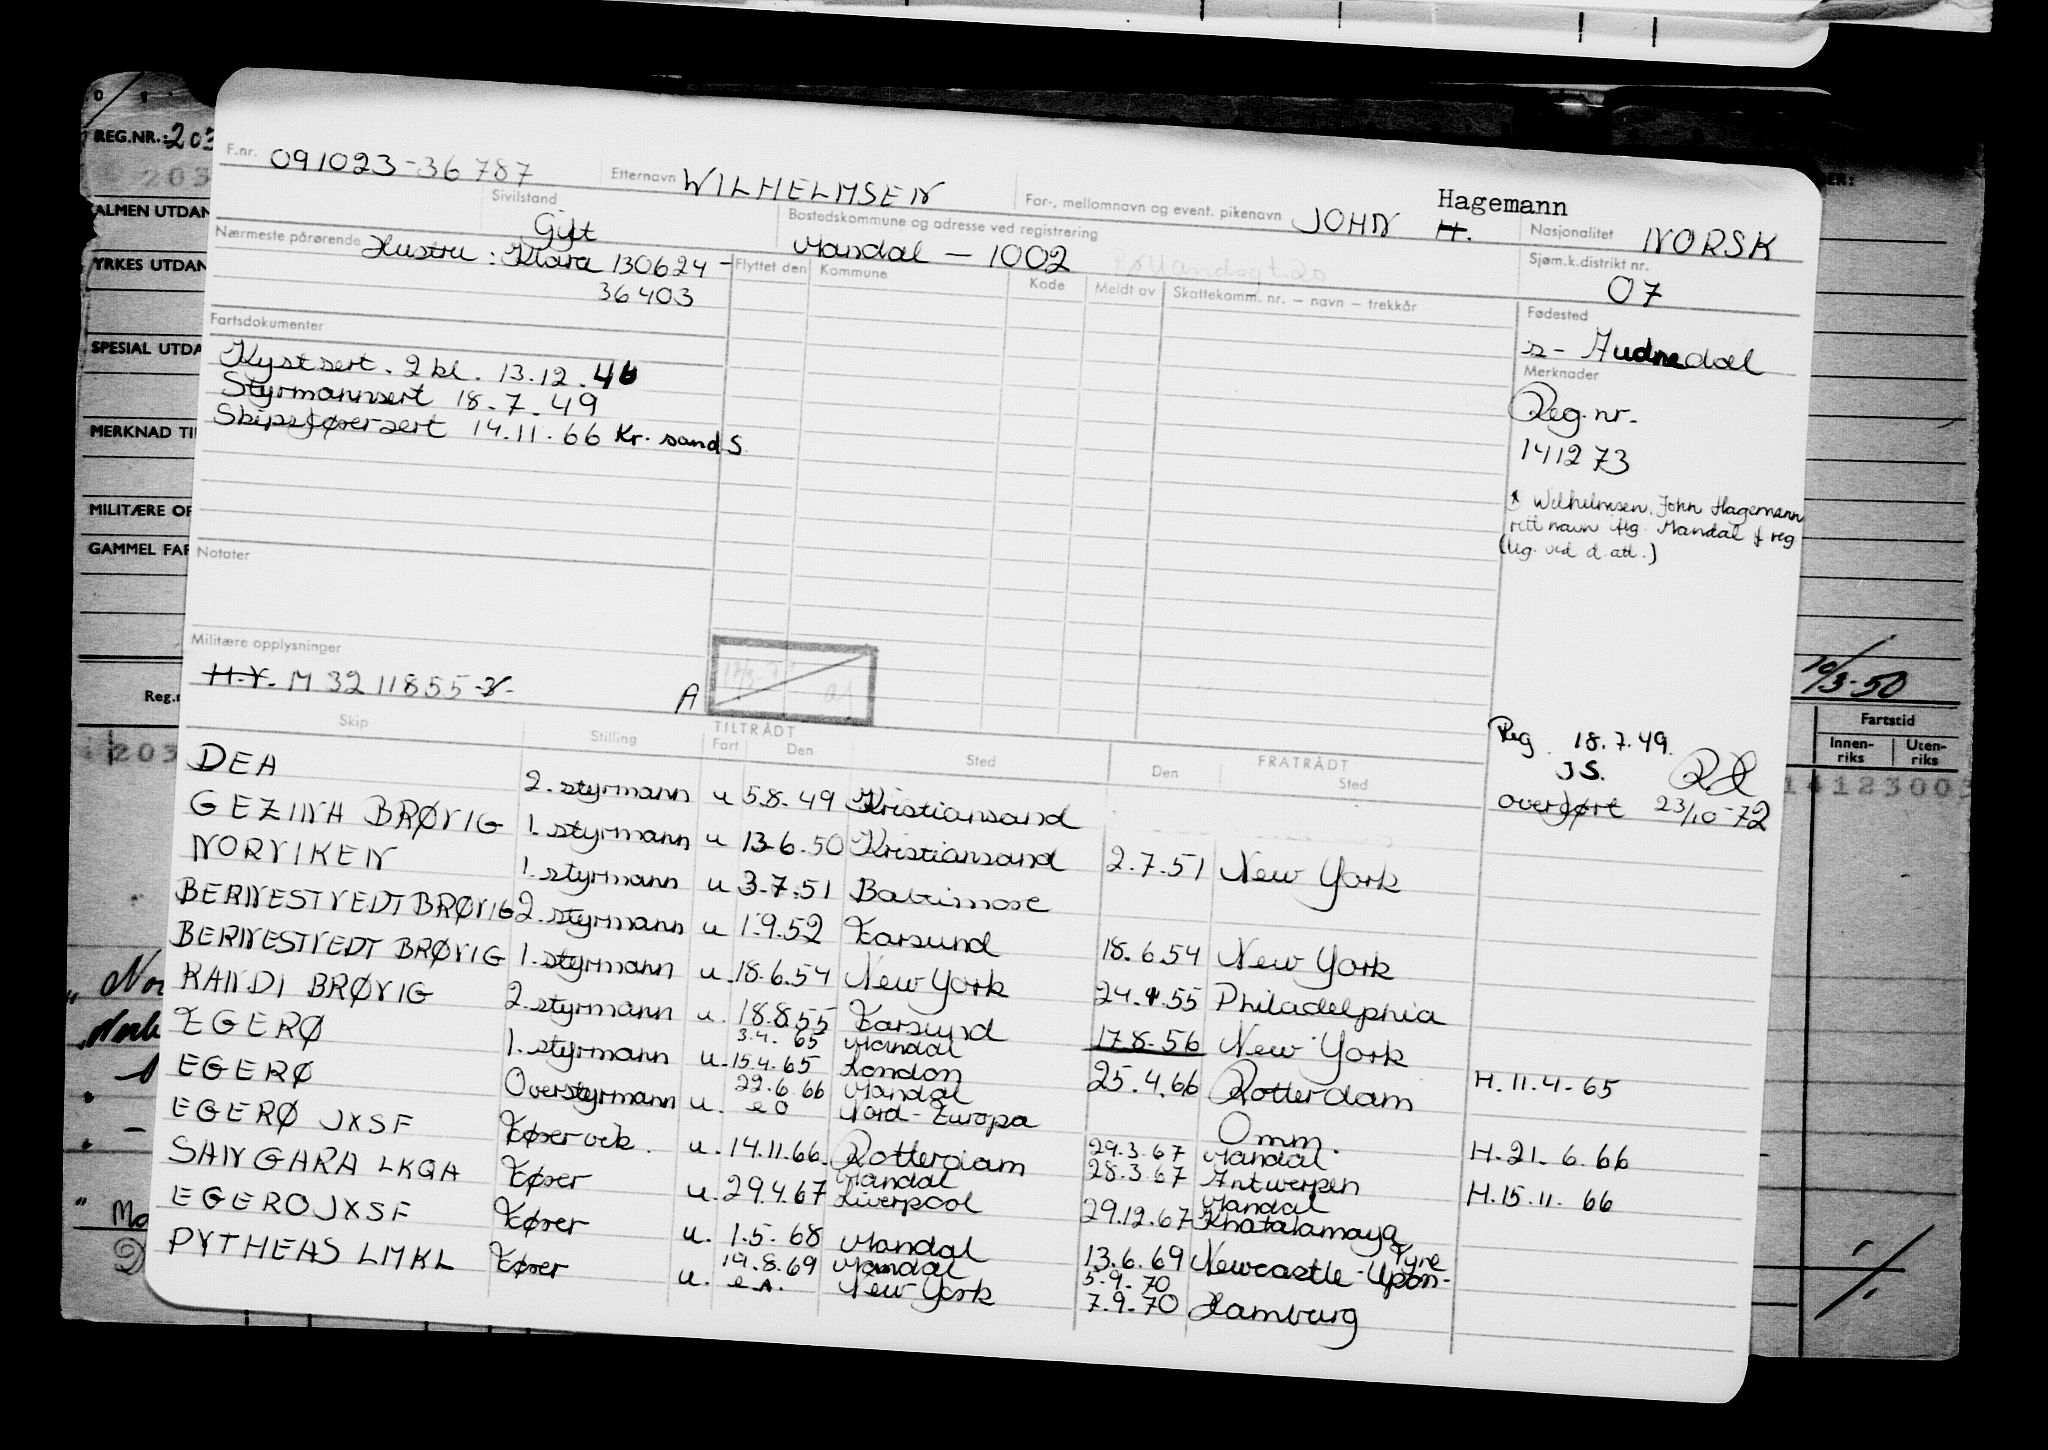 REG.NR.: 203
ALMEN UTDAN
YRKES UTDAN
SPESIAL UTDA
MERKNAD TI
MILITÆRE OP
GAMMEL FAR
Reg.n
F.nr. 091023-36787 Etternavn WILHELMSEN For-, mellomnavn og event. pikenavn JOHN H. Hagemann Nasjonalitet NORSK
Sivilstand Gift
Bostedskommune og adresse ved registrering Mandal - 1002
Sjøm.k.distrikt nr. 07
Nærmeste pårørende Hustru: Klara 130624-
36403
Flyttet den Kommune Kode Meldt av Skattekomm. nr. – navn – trekkår
Fødested
s- Audnedal
Fartsdokumenter
Kystsert. 2 kl. 13.12.46
Styrmannsert 18.7.49
Skipsførersert 14.11.66 Kr. sand S
Merknader
Reg. nr.
141273
Wilhelmsen, John Hagemann
rett navn iflg. Mandal f reg
Notater
Militære opplysninger
H.V. M 3211855
A
Reg. 18.7.49.
JS.
overført 23/10-72
Skip Stilling TILTRÅDT Fart Den Sted FRATRÅDT Den Sted
DEA 2. styrmann u 5.8.49 Kristiansand
GEZINA BRØVIG 1. styrmann u 13.6.50 Kristiansand 2.7.51 New York
NORVIKEN 1. styrmann u 3.7.51 Baltimore
BERNESTVEDT BRØVIG 2. styrmann u 1.9.52 Farsund 18.6.54 New York
BERNESTVEDT BRØVIG 1. styrmann u. 18.6.54 New York 24.4.55 Philadelphia
RANDI BRØVIG 2. styrmann u. 18.8.55 Farsund 17.8.56 New York
EGERØ 1. styrmann u. 3.4.65 Mandal 15.4.65 London 25.4.66 Rotterdam H. 11.4.65
EGERØ Overstyrmann u. 22.6.66 Mandal Nord-Europa Omm. H. 21.6.66
EGERØ JXSF Fører vik. u. 14.11.66 Rotterdam 29.3.67 Mandal 28.3.67 Antwerpen H. 15.11.66
SANGARA LKQA Fører u. 29.4.67 Mandal Liverpool 29.12.67 Mandal
EGERO JXSF Fører u. 1.5.68 Mandal 13.6.69 Newcastle-Upon-Tyne
PYTHEAS LMKL Fører u. 19.8.69 Mandal New York 5.9.70 7.9.70 Hamburg
10/3-50
Fartstid
Innen-riks Uten-riks